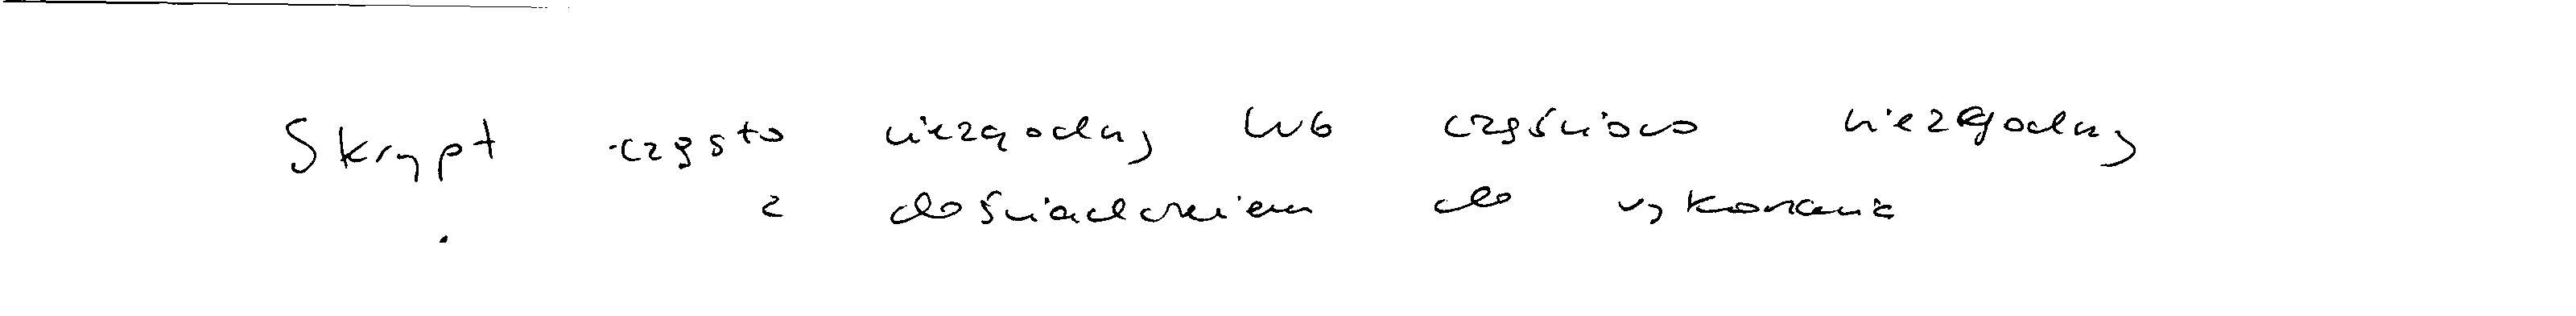 Skrypt często niezgodny lub częściowo niezgodny
z doświadczeniem do wykonania